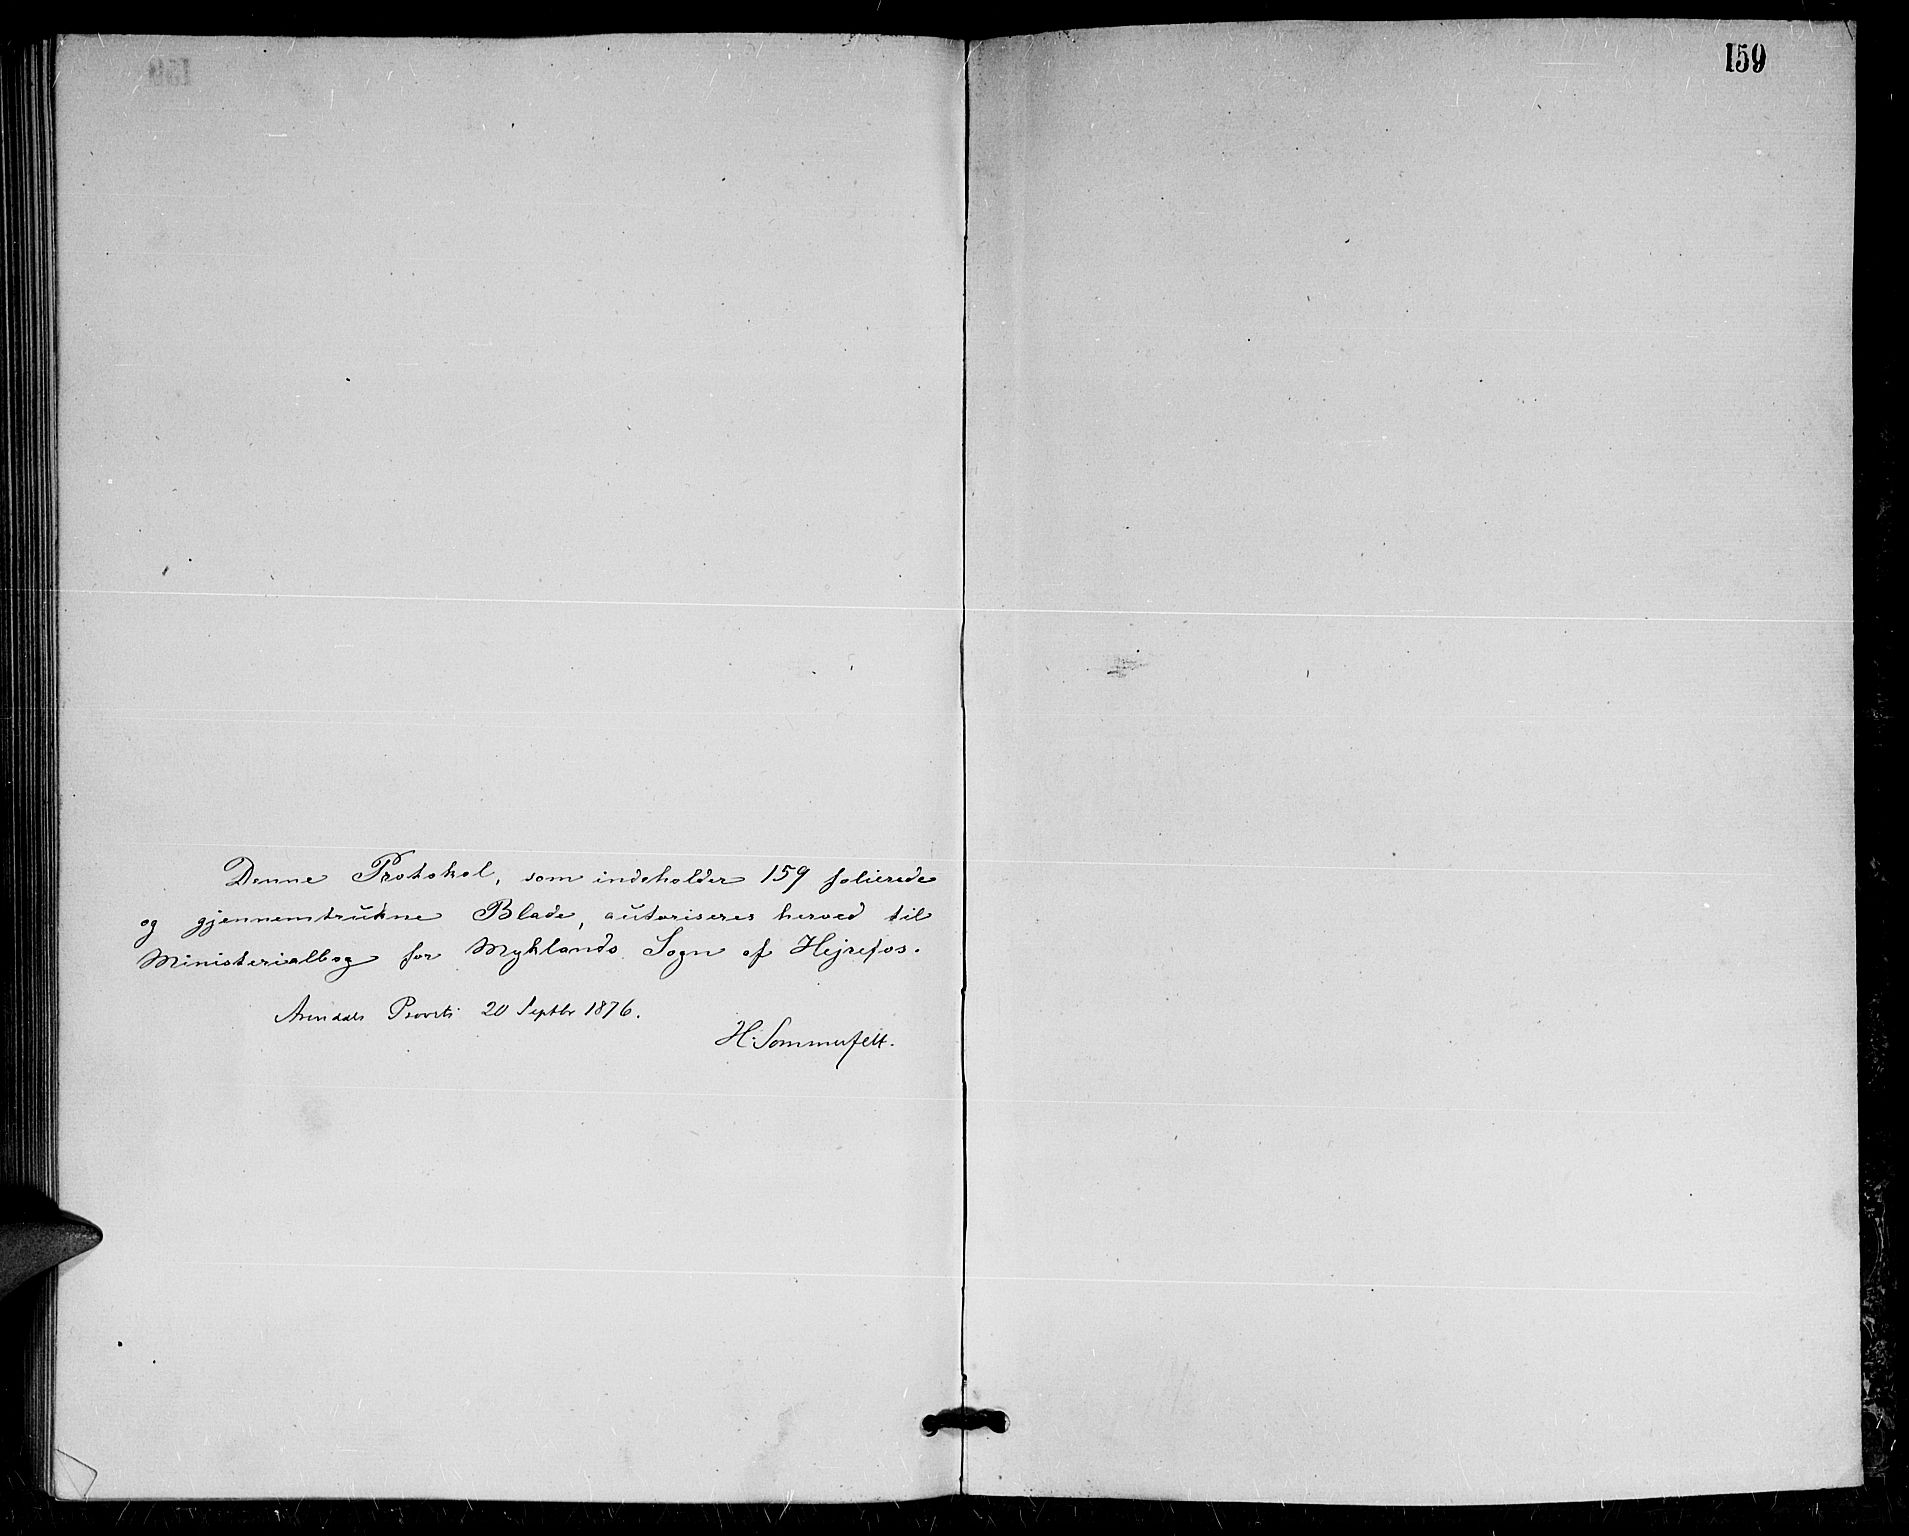 159
Denne Protokol, som indeholder 159 folierede
og gjennemtrukne Blade, autoriseres herved til
Ministerialbog for Myklands Sogn af Hejrefos.
Arendals Provsti 20 Septbr 1876.
H. Sommerfelt.